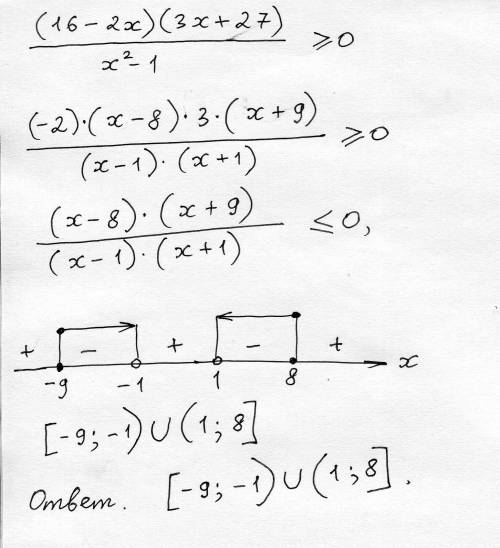 (16-2x)(3x+27)
x²-1
≥0
(-2)·(x-8)·3·(x+9)
(x-1)·(x+1)
≥0
(x-8)·(x+9)
(x-1)·(x+1)
≤0,
+ - + - + x
-9 -1 1 8
[-9;-1)∪(1;8]
Ответ. [-9;-1)∪(1;8].